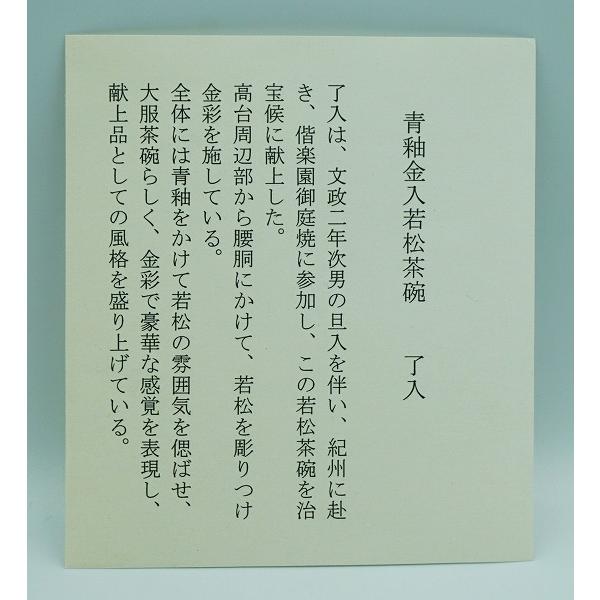 青釉金入若松茶碗　了入
了入は、文政二年次男の旦入を伴い、紀州に赴
き、偕楽園御庭焼に参加し、この若松茶碗を治
宝候に献上した。
高台周辺部から腰胴にかけて、若松を彫りつけ
金彩を施している。
全体には青釉をかけて若松の雰囲気を偲ばせ、
大服茶碗らしく、金彩で豪華な感覚を表現し、
献上品としての風格を盛り上げている。